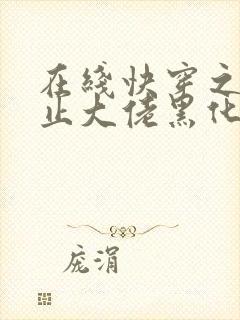 在綫快穿之
止大佬黑化
庞涓